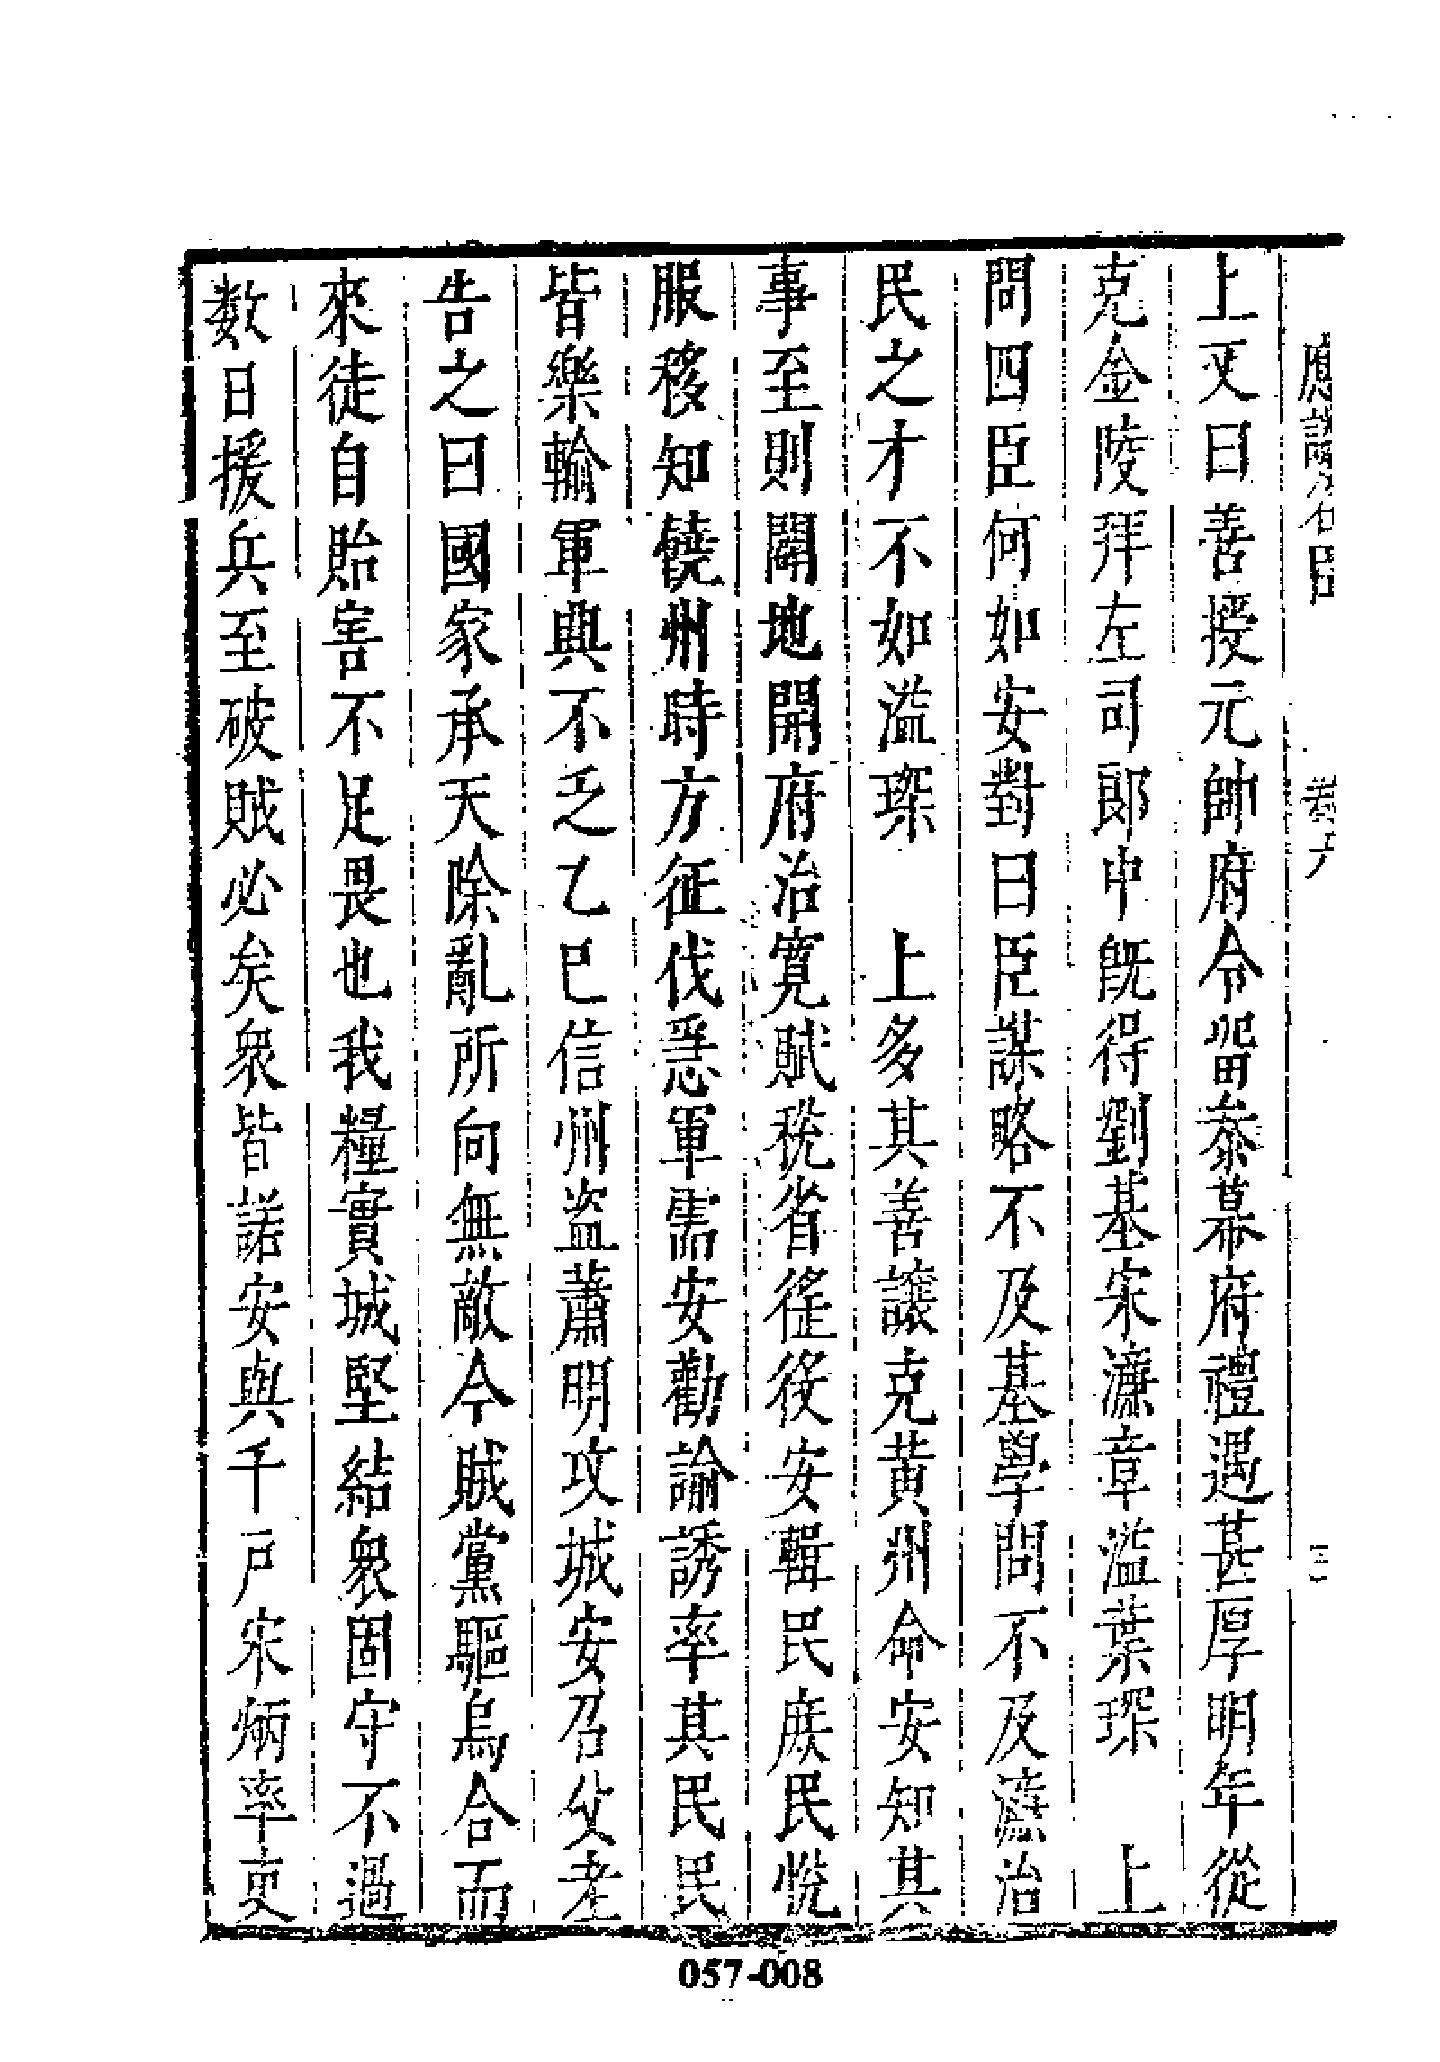 卷六
三
上又曰善授元帥府令留叅幕府禮遇甚厚明年從
克金陵拜左司郎中旣得劉基宋濂章溢葉琛　上
問四臣何如安對曰臣謀略不及基學問不及濂治
民之才不如溢琛　上多其善讓克黃州命安知其
事至則闢地開府治寬賦稅省徭役安輯民庻民悅
服移知饒州時方征伐惡軍需安勸諭誘率其民民
皆樂輸軍興不乏乙巳信州盜蕭明攻城安召父老
告之曰國家承天除亂所向無敵今賊黨驅烏合而
來徒自貽害不足畏也我糧實城堅結衆固守不過
数日援兵至破賊必矣衆皆諾安與千戶宋炳率吏
057-008